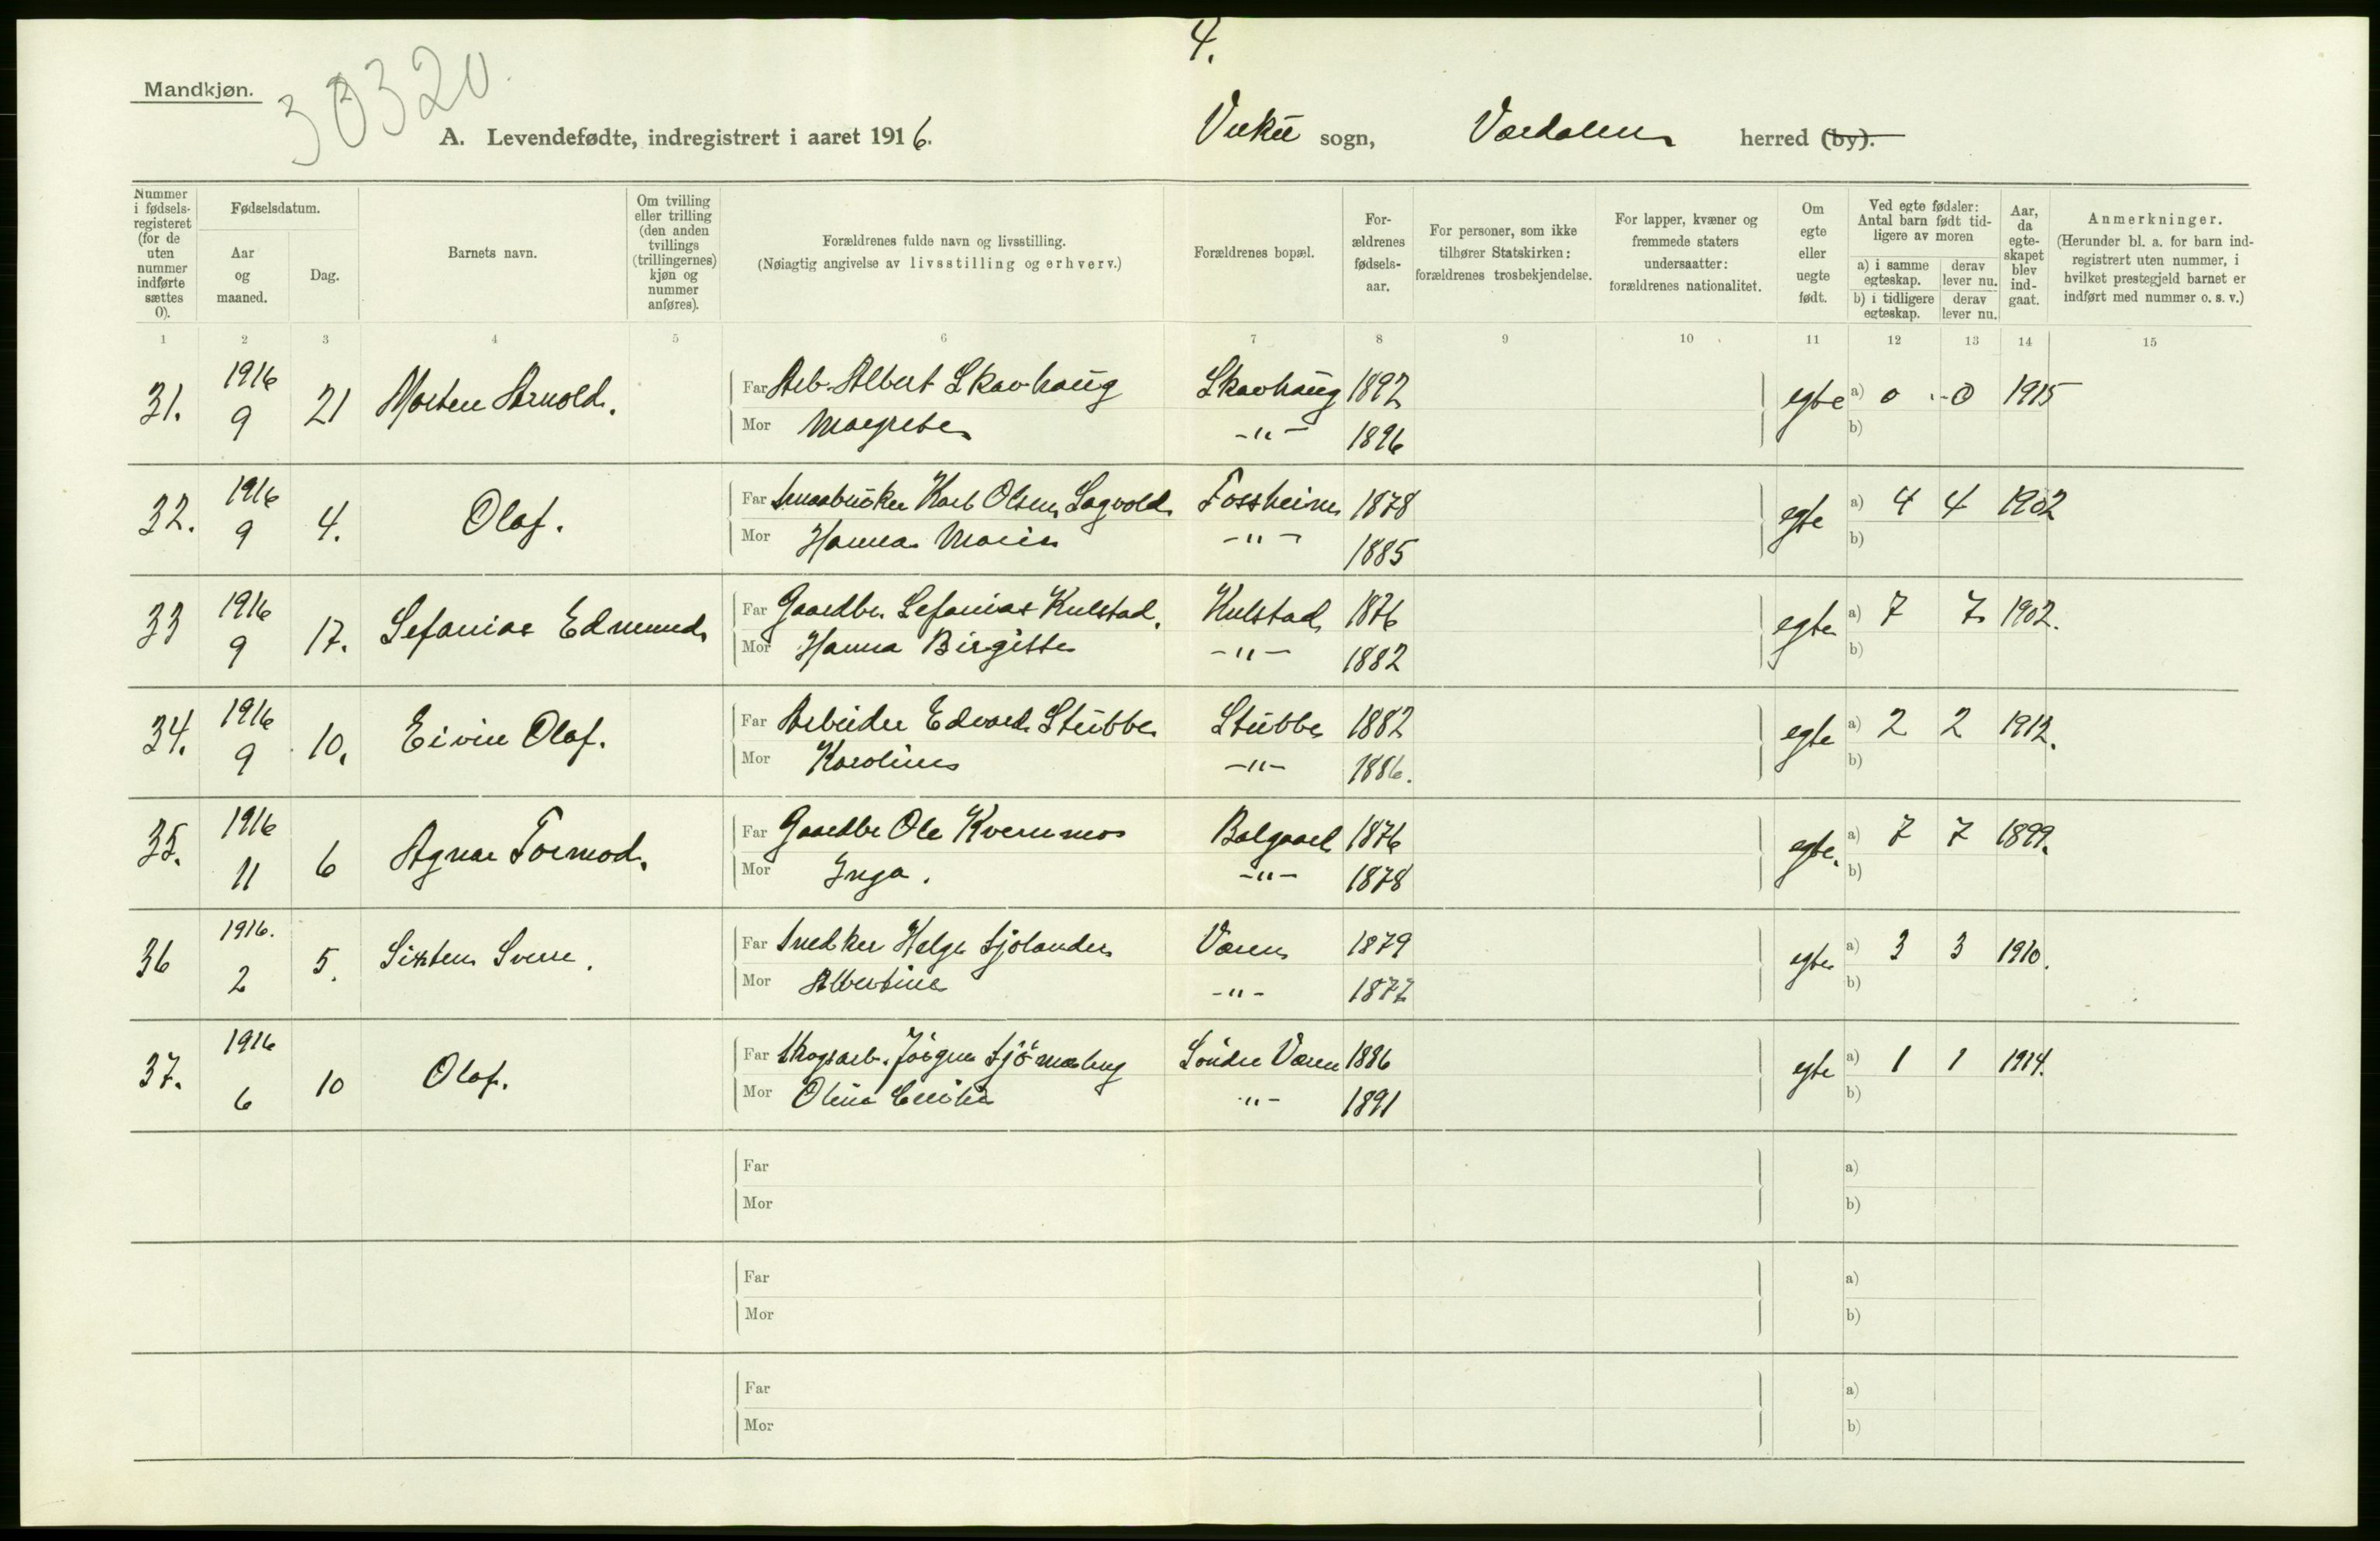 4.
Mandkjøn.
30320.
A. Levendefødte, indregistrert i aaret 1916. Vuku sogn, Værdalen herred (by).
Nummer i fødselsregisteret (for de uten nummer indførte sættes 0).
Fødselsdatum.
Aar og maaned.
Dag.
Barnets navn.
Om tvilling eller trilling (den anden tvillings (trillingernes) kjøn og nummer anføres).
Forældrenes fulde navn og livsstilling.
(Nøiagtig angivelse av livsstilling og erhverv.)
Forældrenes bopæl.
Forældrenes fødselsaar.
For personer, som ikke tilhører Statskirken: forældrenes trosbekjendelse.
For lapper, kvæner og fremmede staters undersaatter: forældrenes nationalitet.
Om egte eller uegte født.
Ved egte fødsler: Antal barn født tidligere av moren
a) i samme egteskap. derav lever nu.
b) i tidligere egteskap. derav lever nu.
Aar, da egteskapet blev indgaat.
Anmerkninger.
(Herunder bl. a. for barn indregistrert uten nummer, i hvilket prestegjeld barnet er indført med nummer o. s. v.)
1 2 3 4 5 6 7 8 9 10 11 12 13 14 15
31. 1916 9 21 Morten Arnold. Far Arb. Albert Skavhaug Skavhaug 1892 egte a) 0 0 1915
Mor Margrete -"- 1896 b)
32. 1916 9 4. Olaf. Far Smaabruker Karl Olsen Sagvold Fossheim 1878 egte a) 4 4 1902
Mor Hanna Marie -"- 1885 b)
33 1916 9 17. Sefanias Edmund Far Gaardbr. Sefanias Kulstad. Kulstad 1876 egte a) 7 7 1902.
Mor Hanna Birgitte -"- 1882 b)
34. 1916 9 10. Eivin Olaf. Far Arbeider Edvard Stubbe Stubbe 1882 egte a) 2 2 1912.
Mor Karoline -"- 1886. b)
35. 1916 11 6 Agnar Tormod. Far Gaardbr Ole Kvernmo Balgaard 1876 egte. a) 7 7 1899.
Mor Inga. -"- 1878 b)
36 1916. 2 5. Sixten Sverre. Far Snedker Helge Sjölander Væren 1879 egte a) 3 3 1910.
Mor Albertine -"- 1877 b)
37. 1916 6 10 Olaf. Far Skogsarb. Jörgen Söndre Væren 1886 egte a) 1 1 1914.
Mor Oline Cecilia "- 1891 b)
Far a)
Mor b)
Far a)
Mor b)
Far a)
Mor b)